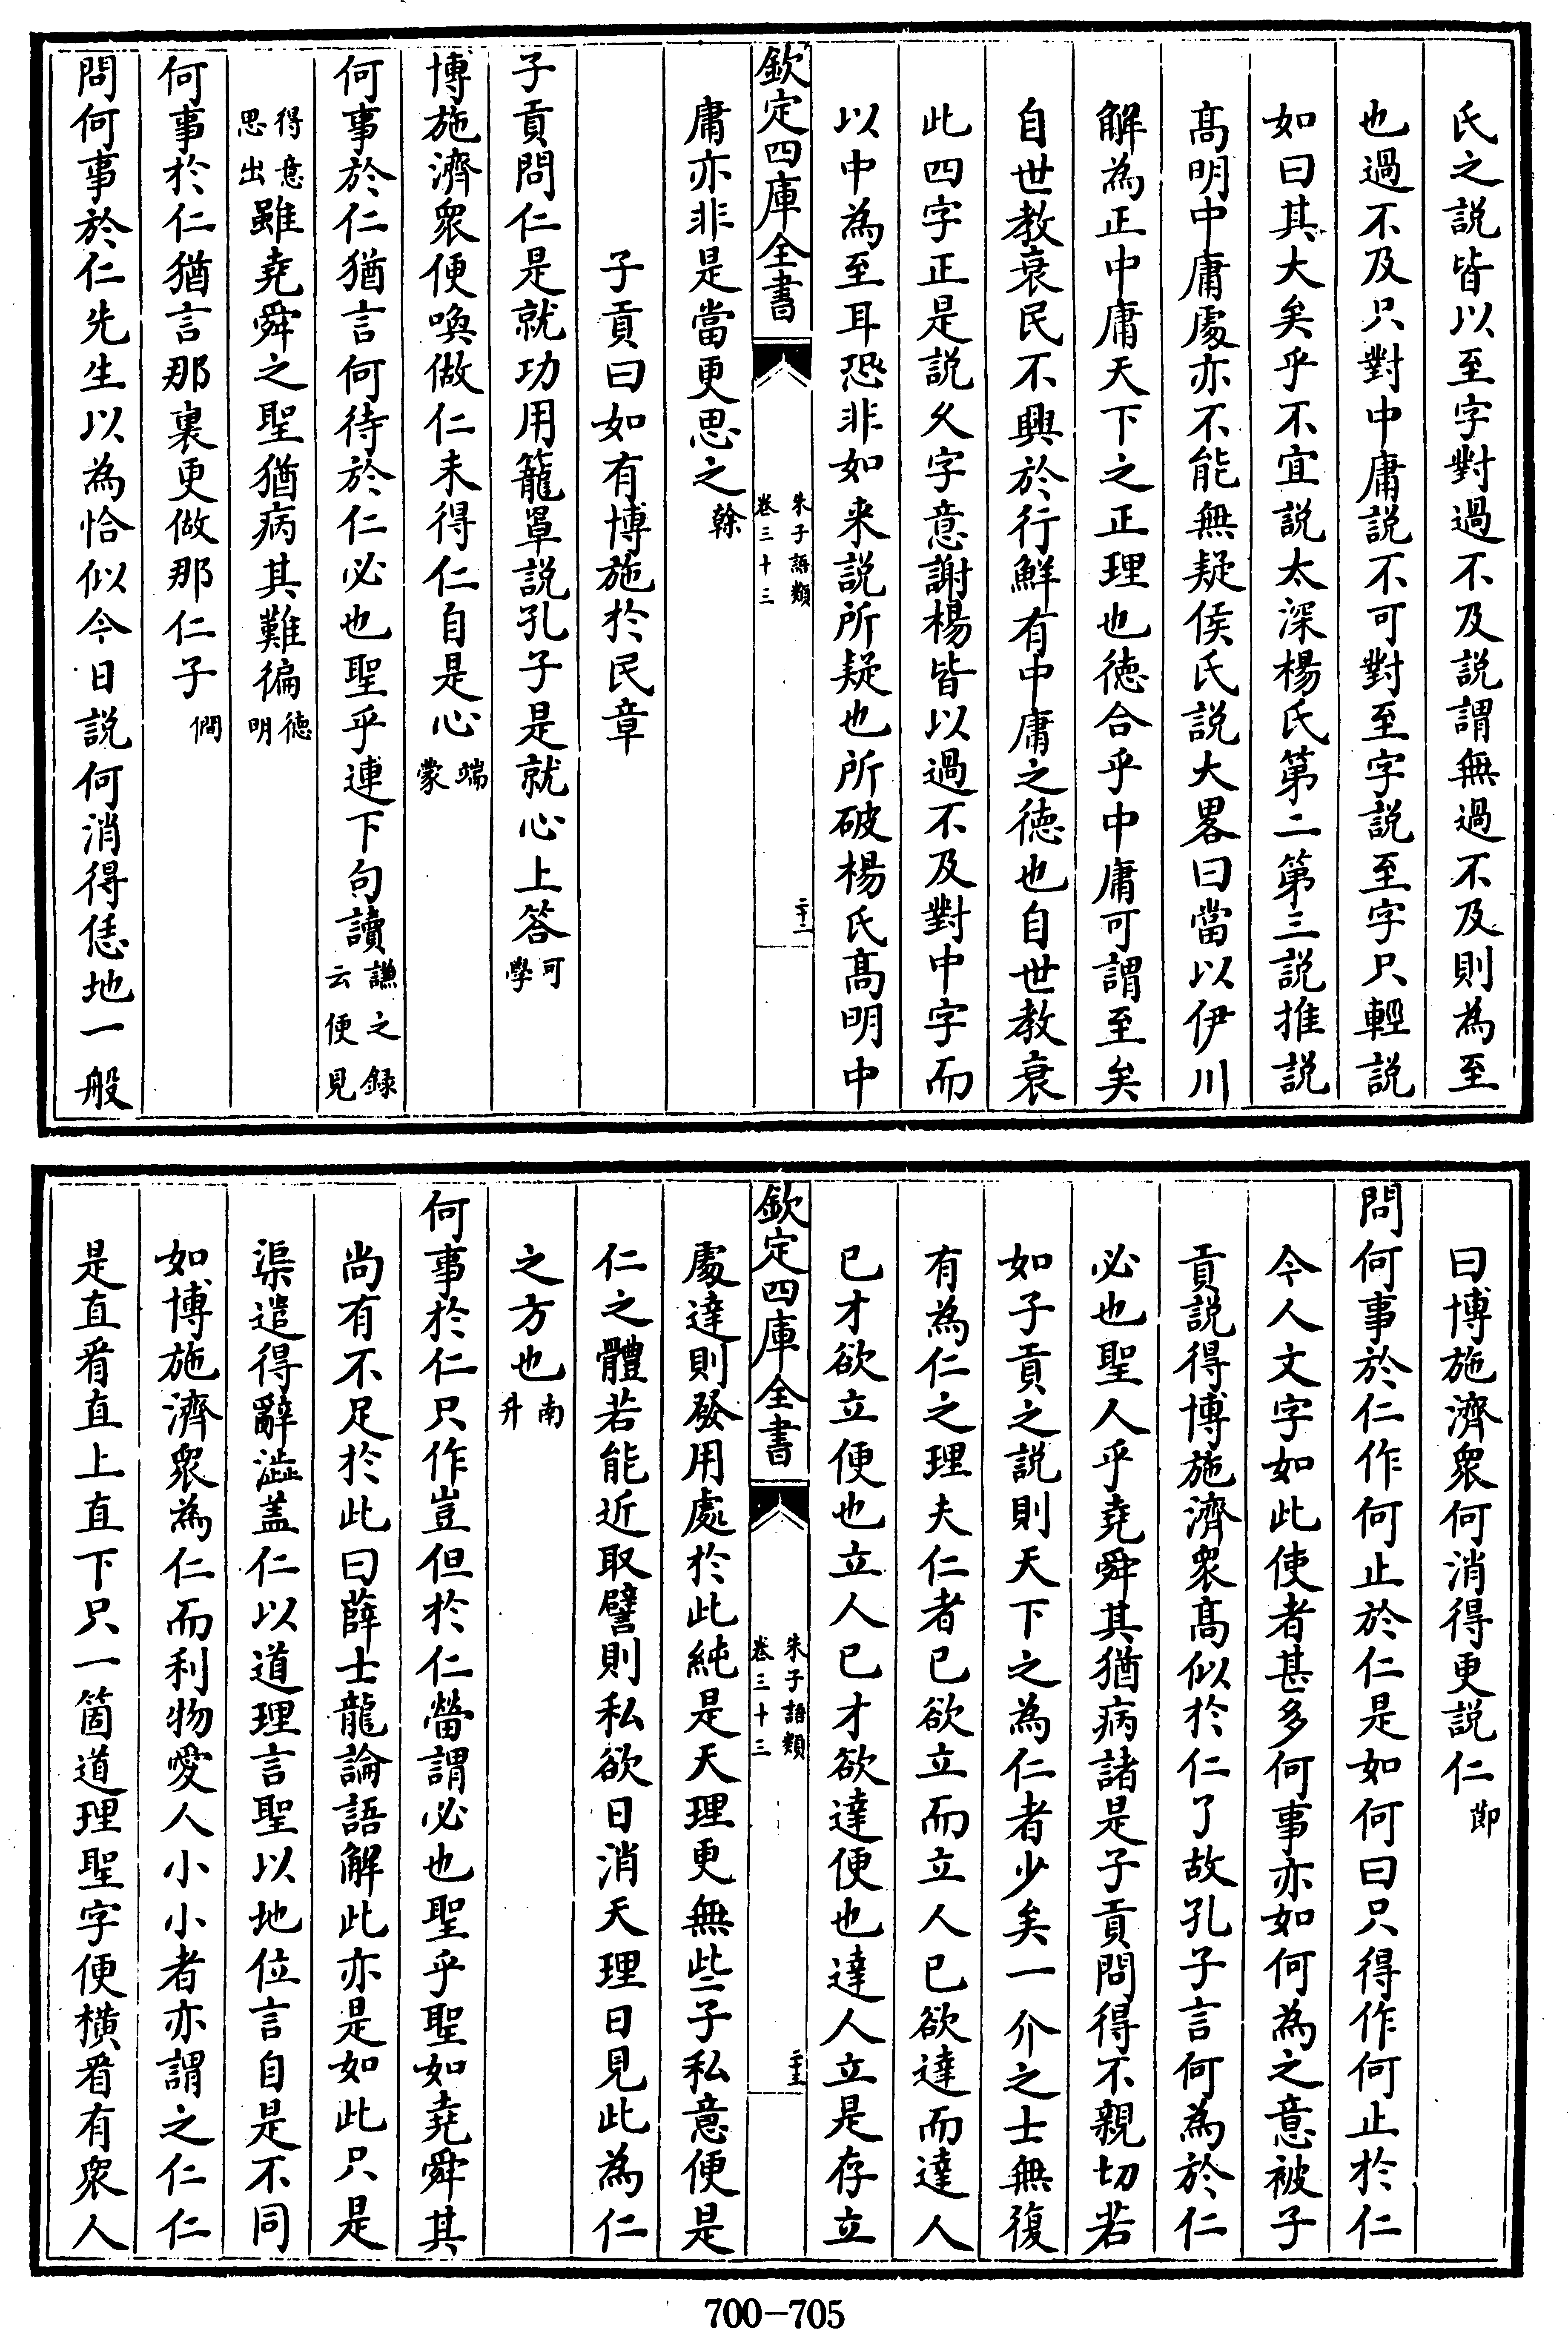 氏之説皆以至字對過不及説謂無過不及則為至
也過不及只對中庸説不可對至字説至字只輕説
如曰其大矣乎不宜説太深楊氏第二第三説推説
髙明中庸處亦不能無疑侯氏説大畧曰當以伊川
解為正中庸天下之正理也徳合乎中庸可謂至矣
自世教衰民不興於行鮮有中庸之徳也自世教衰
此四字正是説久字意謝楊皆以過不及對中字而
以中為至耳恐非如来説所疑也所破楊氏髙明中
欽定四庫全書
朱子語類
卷三十三
二十二
庸亦非是當更思之榦
子貢曰如有博施於民章
子貢問仁是就功用籠罩説孔子是就心上答可學
博施濟衆便喚做仁未得仁自是心端蒙
何事於仁猶言何待於仁必也聖乎連下句讀謙之錄云便見
得意思出雖堯舜之聖猶病其難徧徳明
何事於仁猶言那裏更做那仁子僩
問何事於仁先生以為恰似今日説何消得恁地一般
曰博施濟衆何消得更説仁節
問何事於仁作何止於仁是如何曰只得作何止於仁
今人文字如此使者甚多何事亦如何為之意被子
貢説得博施濟衆髙似於仁了故孔子言何為於仁
必也聖人乎堯舜其猶病諸是子貢問得不親切若
如子貢之説則天下之為仁者少矣一介之士無復
有為仁之理夫仁者已欲立而立人已欲達而達人
已才欲立便也立人已才欲達便也達人立是存立
欽定四庫全書
朱子語類
卷三十三
二十三
處達則發用處於此純是天理更無些子私意便是
仁之體若能近取譬則私欲日消天理日見此為仁
之方也南升
何事於仁只作豈但於仁㽦謂必也聖乎聖如堯舜其
尚有不足於此曰薛士龍論語解此亦是如此只是
渠遣得辭澁盖仁以道理言聖以地位言自是不同
如博施濟衆為仁而利物愛人小小者亦謂之仁仁
是直看直上直下只一箇道理聖字便横看有衆人
700-705